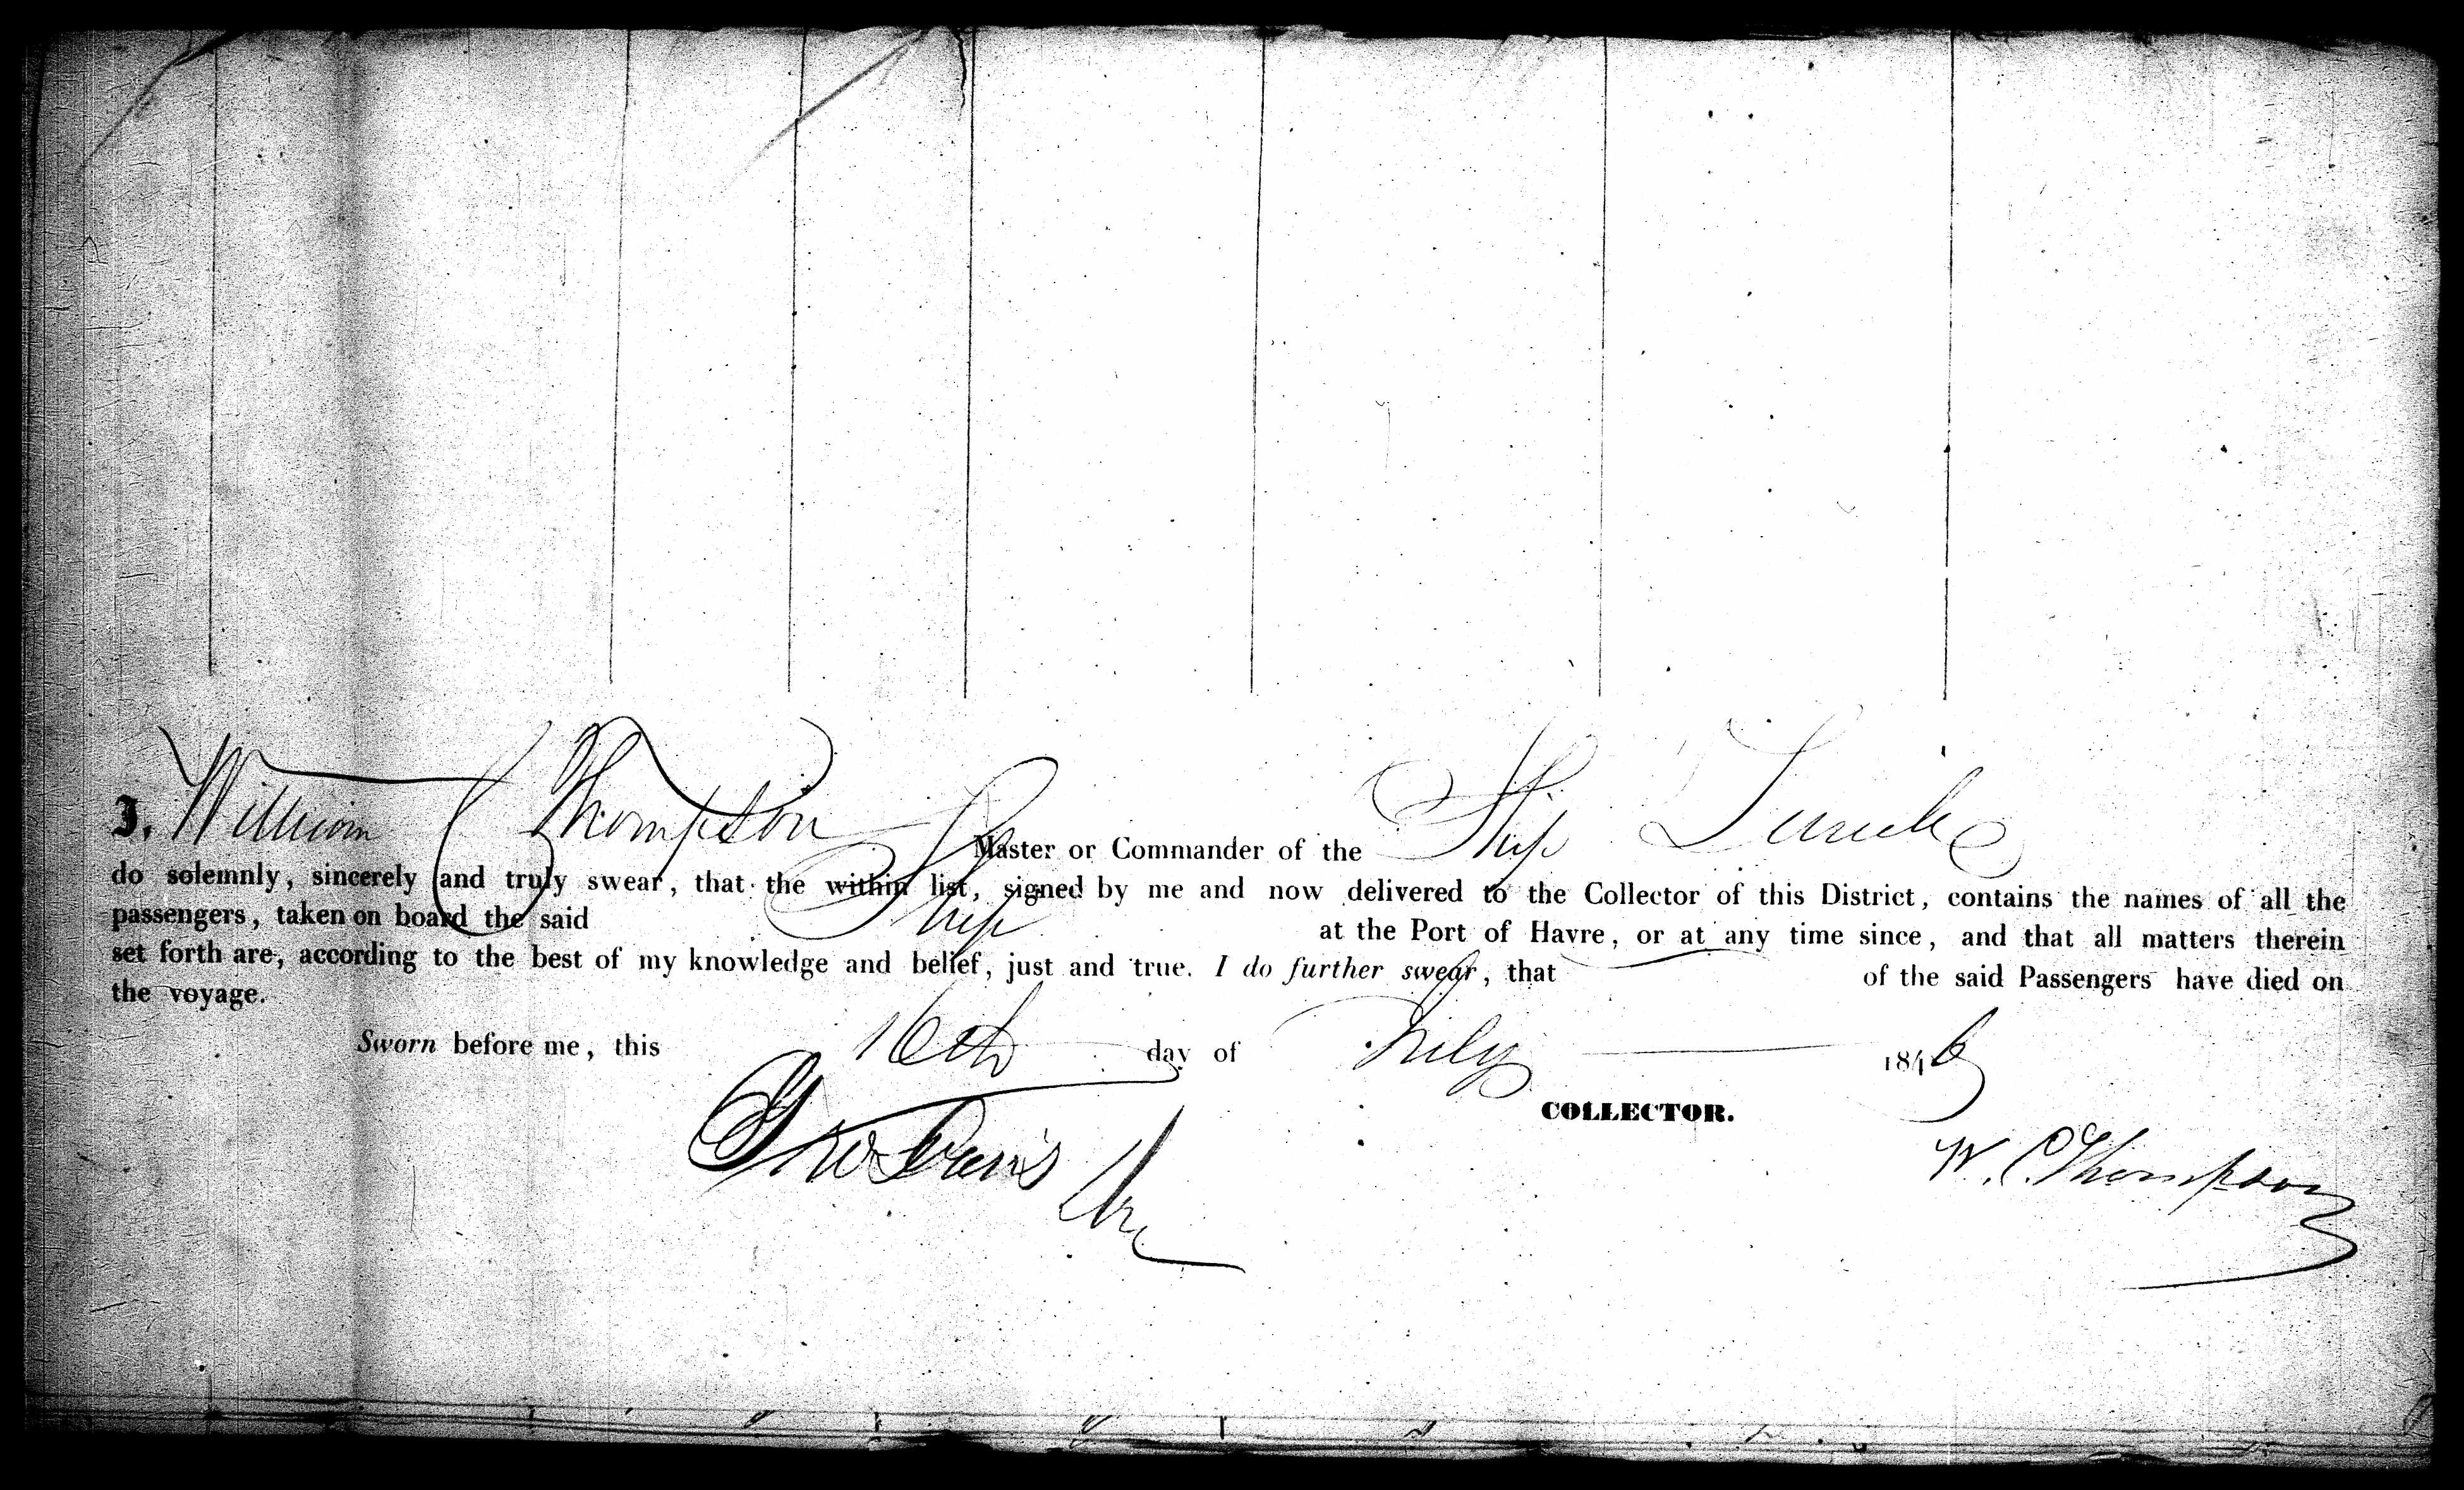 I, William C Thompson Master or Commander of the Ship Zurich
do solemnly, sincerely and truly swear, that the within list, signed by me and now delivered to the Collector of this District, contains the names of all the
passengers, taken on board the said Ship at the Port of Havre, or at any time since, and that all matters therein
set forth are, according to the best of my knowledge and belief, just and true. I do further swear, that of the said Passengers have died on
the voyage.
Sworn before me, this 16th day of July 1846
COLLECTOR.
W. C. Thompson
Davis